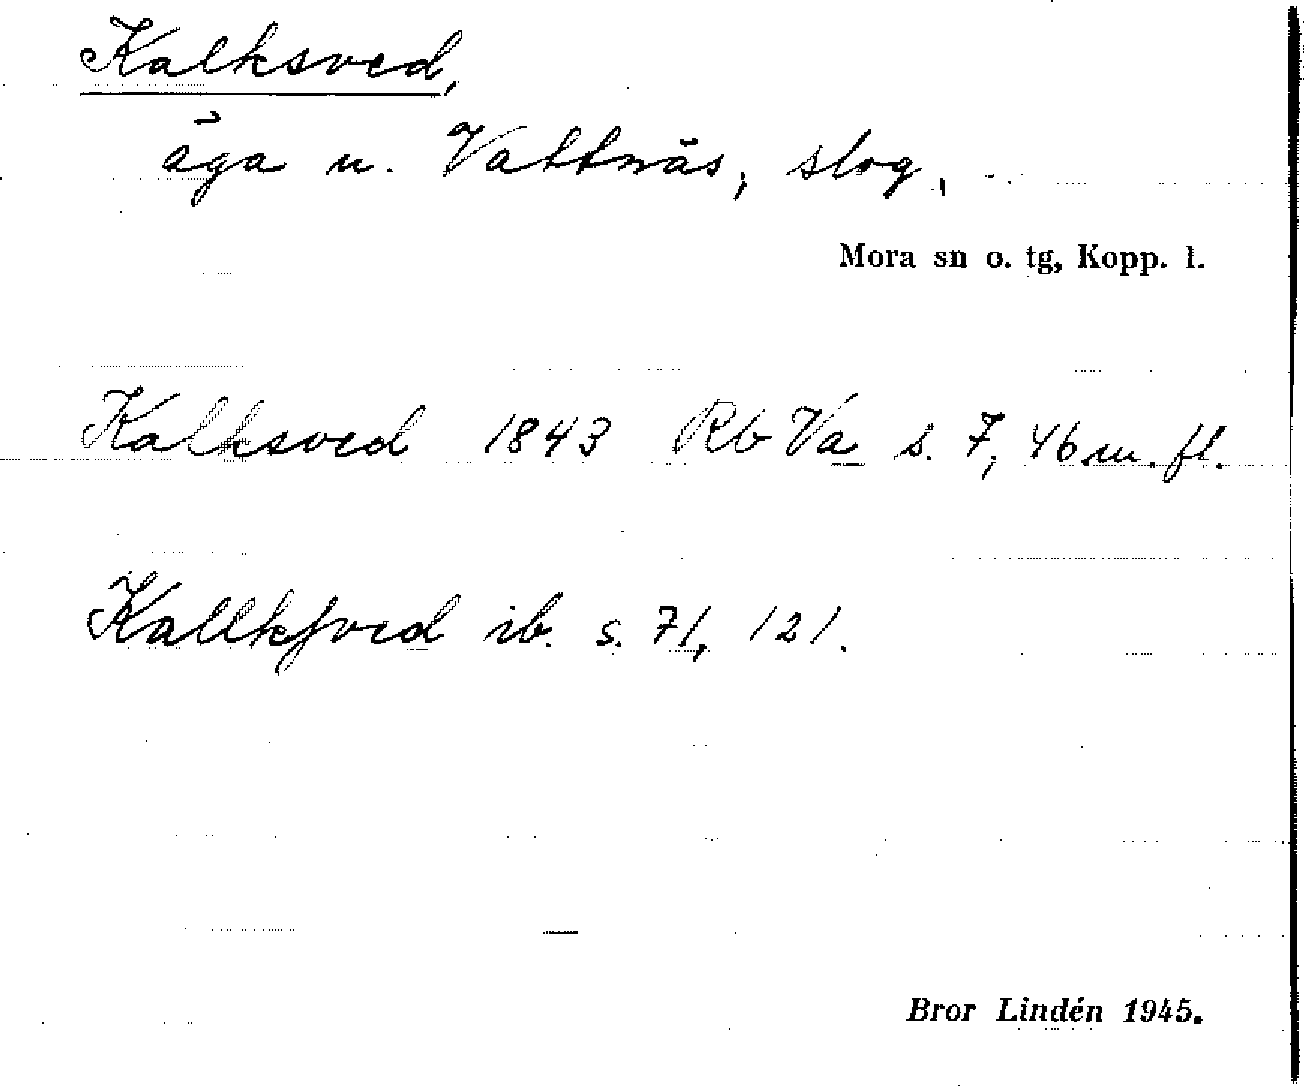 Kalksved,
äga u. Vattnäs, slog,
Mora sn o. tg, Kopp. l.
Kalksved 1843 Rb Va s. 7, 46 m. fl.
Kallksved ib. s. 71, 121.
Bror Lindén 1945.